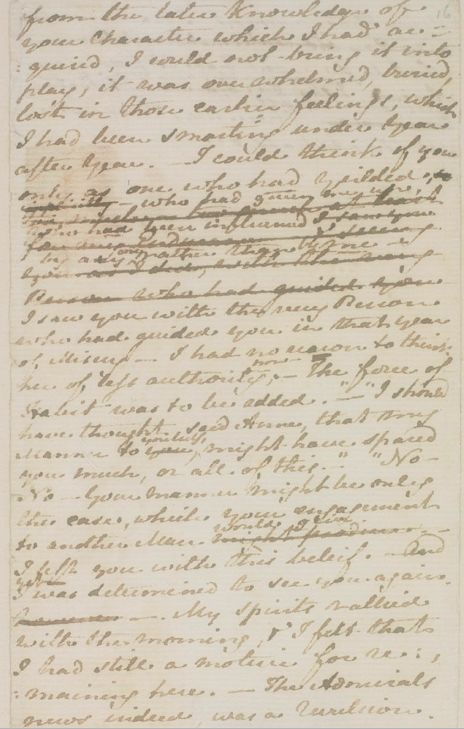 16
from the later Knowledge of
your Character which I had ac=
:quired, I could not bring it into
play; it was overwhelmed, buried,
lost in those earlier feelings, which
I had been smarting under Year
after Year. — I could think of you
only as one who had yeilded,
— who had given me up,
who had been influenced
by any one rather than by me —
you
Person who had guided you
I saw you with the very Person
who had guided you in that year
of Misery — I had no reason to think
her of less authority now; — The force of
Habit was to be added. — "I should
have thought, said Anne, that my
Manner to yourself, might have spared
you much, or all of this." — "No —
No — Your manner might be only
the ease, which your engagement
to another Man would give. —
I left you with this beleif. — And
yet I was determined to see you again.
— My spirits rallied
with the morning, & I felt that
I had still a motive for re:
:maining here. — The Admirals
news indeed, was a revulsion.